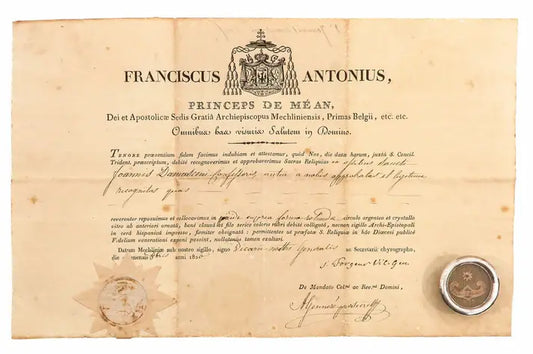 FRANCISCUS ANTONIUS,
PRINCEPS DE MÉAN,
Dei et Apostolicæ Sedis Gratiâ Archiepiscopus Mechliniensis, Primas Belgii, etc. etc.
Omnibus has visuris Salutem in Domino.
TENORE præsentium fidem facimus indubiam et attestamur, quod Nos, die data harum, juxtà S. Concil.
Trident. præscriptum, debitè recognoverimus et approbaverimus Sacras Reliquias ex
Joannis Damasceni Confessoris, antea a nobis approbatas et legitime
recognitas quas
reverenter reposuimus et collocavimus in forma rotunda argenteo et crystallo
vitro ab anteriori creatâ, benè clausâ ac filo serico coloris rubri debitè colligatâ, necnon sigillo Archi-Episcopali
in cerâ hispanicâ impresso, firmiter obsignatâ: permittentes ut præfatæ S. Reliquiæ in hâc Diœcesi publicè
Fidelium venerationi exponi possint, nullatenùs tamen exultari.
Datum Mechliniæ sub nostro sigillo, signo Vicarii nostri Generalis ac Secretarii chyrographo,
die mensis anni 1820
J. Forgeur Vic. Gen.
De Mandato Cel.mi ac Rev.mi Domini,